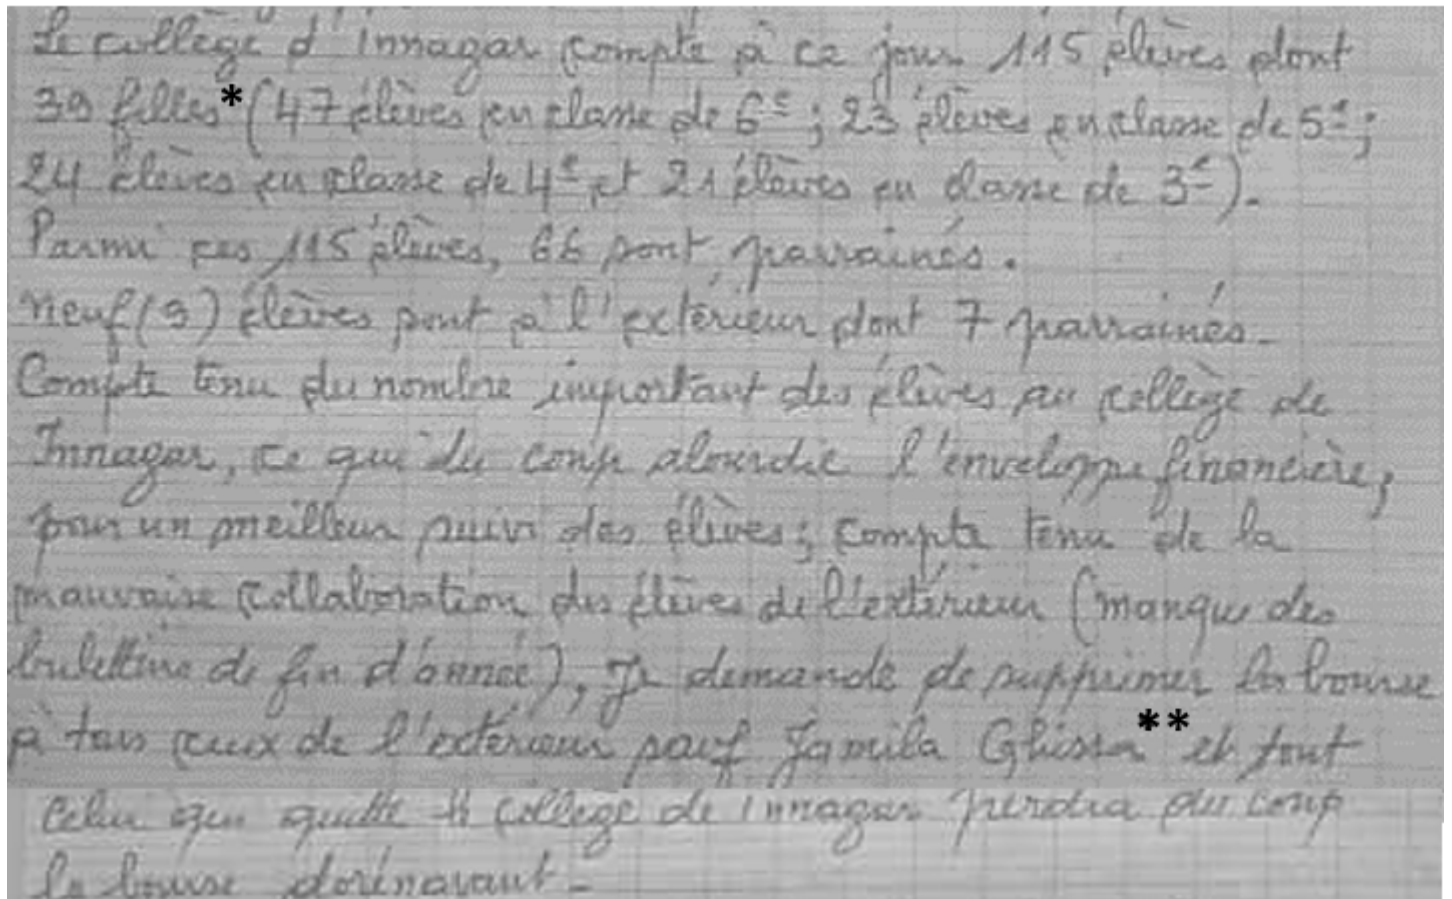 Le collège d'Innagar compte à ce jour 115 élèves dont
39 filles* (47 élèves en classe de 6e ; 23 élèves en classe de 5e ;
24 élèves en classe de 4e et 21 élèves en classe de 3e).
Parmi ces 115 élèves, 66 sont parrainés.
Neuf (9) élèves sont à l'extérieur dont 7 parrainés.
Compte tenu du nombre important des élèves au collège de
Innagar, ce qui du coup alourdie l'enveloppe financière,
pour un meilleur suivi des élèves ; compte tenu de la
mauvaise collaboration des élèves de l'extérieur (manque des
bulettins de fin d'année), Je demande de supprimer les bourse
à tous ceux de l'extérieur sauf Jamila Ghissa** et tout
celui qui quitte le collège de Innagar perdra du coup
la bourse dorénavant.